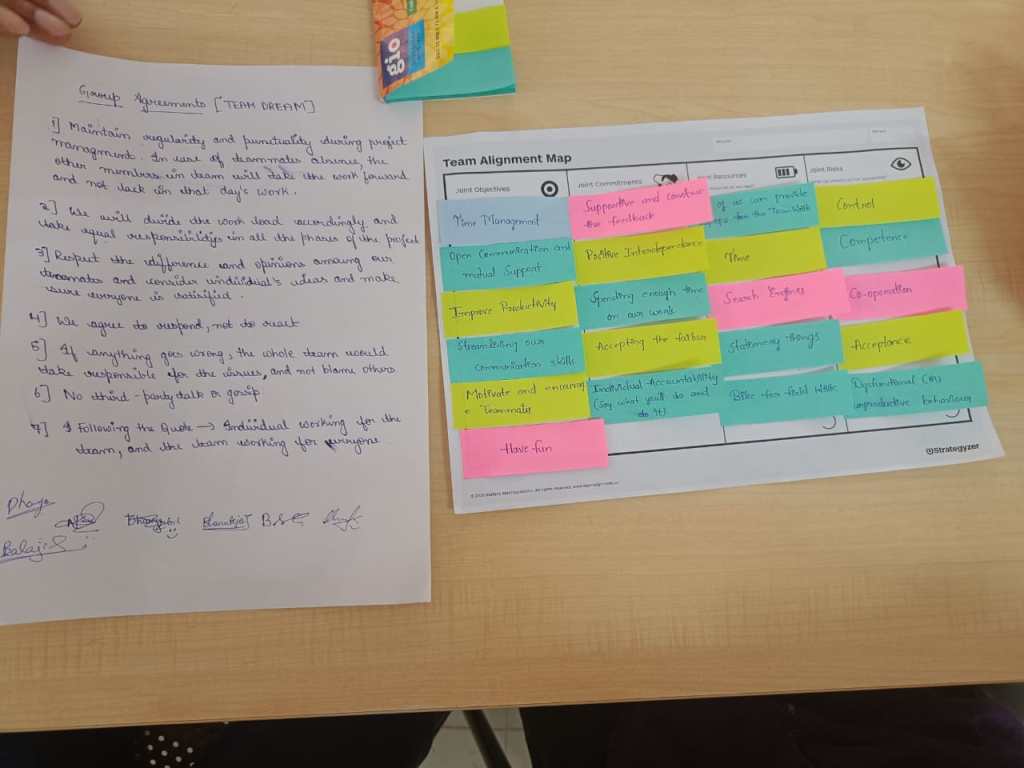 gio
Group Agreements [TEAM DREAM]
1] Maintain regularity and punctuality during project
managment. In case of teammates absence, the
other members in team will take the work forward
and not lack in that day's work.
2] We will divide the work load accordingly and
take equal responsibilitys in all the phases of the project
3] Respect the difference and opinions among our
teammates and consider individual's ideas and make
sure everyone is satisfied.
4] We agree to respond, not to react
5] If anything goes wrong, the whole team would
take responsible for the issues, and not blame others
6] No third-party talk or gossip
7] Following the Quote → Individual working for the
team, and the team working for everyone
Balaji.S
B.S.C
Team Alignment Map
Joint Objectives
Time Management
Open Communication and
mutual Support
Improve Productivity
Streamlining our
communication skills
Motivate and encourag
e Teammate
Have fun
Joint Commitments
Supportive and construc
tive feedback
Positive Interdependence
Spending enough time
on our work
Accepting the failure
Individual Accountability
(Say what you'll do and
do it)
Joint Resources
of us can provide
for the Team Work
Time
Search Engines
Stationery things
Bike for field Work
Joint Risks
Control
Competence
Co-operation
Acceptance
Dysfunctional (or)
unproductive behaviour
Strategyzer